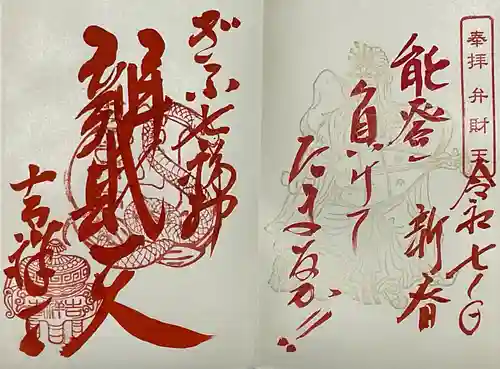 奉拝 弁財天
令和七、一、一
新春
能登
負けて
たまるか!!
ぎふ七福神
辨財天
吉祥寺